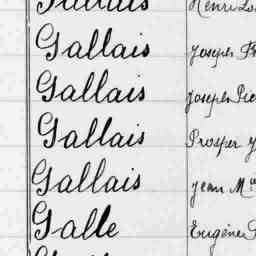 Gallais Henri
Gallais Joseph
Gallais Joseph
Gallais Prosper
Gallais Jean M
Galle Eugène